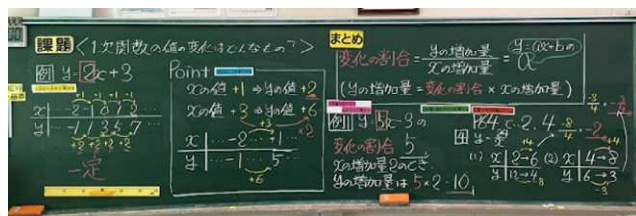 課題 <1次関数の値の変化はどんなもの?>
例 y=2x+3
+1 +1 +1 +1
x … -2 -1 0 1 2 …
y … -1 1 3 5 7 …
+2 +2 +2 +2
一定
Point
xの値 +1 ⇒ yの値 +2
xの値 +3 ⇒ yの値 +6
×2
+3
x … -2 … +1 …
y … -1 … 5 …
+6
まとめ
変化の割合 = yの増加量 / xの増加量 =
y=ax+bの
a
(yの増加量 = 変化の割合 × xの増加量)
y=5x-3の
変化の割合 5
xの増加量2のとき
yの増加量は 5×2=10
P64
(1) x 2→6
y 12→4
-8
(2) x 4→8
y 6→3
-3
+4
-8/4
-2
-3/4